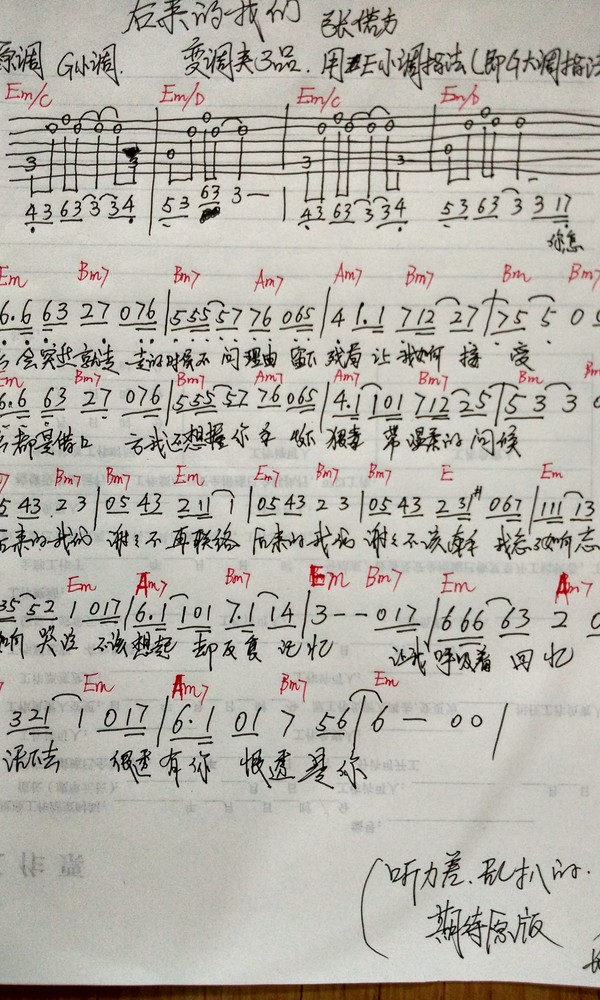 后来的我们 张信
原调 G小调. 变调夹3品. 用Em小调指法(即G大调指法
Em/C Em/D Em/C Em/D
3 3 3
43 63 3 34 | 53 63 3 — | 43 63 3 34 53 63 3 3 17
你怎
Em Bm7 Bm7 Am7 Am7 Bm7 Bm Bm7
6.6 63 27 076 | 555 57 76 065 | 4 1.1 712 27 | 75 5 0
会突然就走 走的时候不问理由 留下残局 让我如何接受
Em Bm7 Bm7 Am7 Am7 Bm7 Bm
6.6 63 27 076 | 555 57 76 065 | 4.1 101 712 25 | 53 3
都是借口 我还想握你手 带温柔的问候
Bm7 Bm7 Em Em7 Bm7 Bm7 E Em
5 43 2 3 | 05 43 2 11 1 | 05 43 2 3 | 05 43 2 31# 067 | 111 13
后来的我们 谢谢不再联络 后来的我们 谢谢不该牵手 我忘了如何忘
Em Am7 Bm7 Em Bm7 Em Am7
35 52 1 017 | 6.1 101 7.1 14 | 3 - - 017 | 666 63 2
哭泣 不该想起 却反复记忆 让我呼吸着回忆
Em Am7 Bm7 Em
321 1 017 | 6.1 01 7 56 | 6 — 0 0 |
有你 恨透是你
(听力差.乱扒的.
期待原版